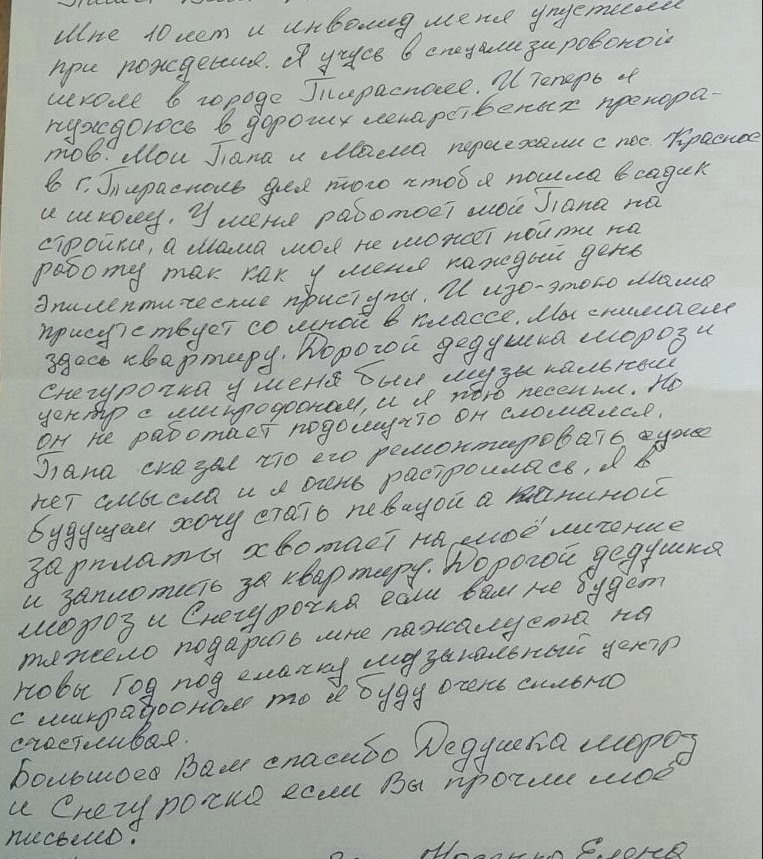 Мне 10 лет и инволид меня упустили
при рождения. Я учусь в специализировоной
школе в городе Тирасполе. И теперь я
нуждоюсь в дорогих лекарственых препора-
тов. Мои Папа и Мама переехали с пос. Красное
в г. Тирасполь для того чтоб я пошла в садик
и школу. У меня работает мой Папа на
стройки, а Мама моя не может пойти на
работу так как у меня каждый день
эпилептические приступы. И изо-этого Мама
присутствует со мной в классе. Мы снимаем
здесь квартиру. Дорогой дедушка мороз и
снегурочка у меня был музыкальный
центр с микрофоном, и я пою песенки. Но
он не работает подомучто он сломался.
Папа сказал что его ремонтировать уже
нет смысла и я очень растроилась. Я в
будущем хочу стать певицой а папиной
зарплаты хвотает на моё личение
и заплотить за квартиру. Дорогой дедушка
мороз и Снегурочка если вам не будет
тяжело подарить мне пажалуста на
новы Год под елачку музыкальный центр
с микрафоном то я буду очень сильно
счастливая.
Большоеа Вам спасибо Дедушка мороз
и Снегурочка если Вы прочли моё
письмо.
Елена